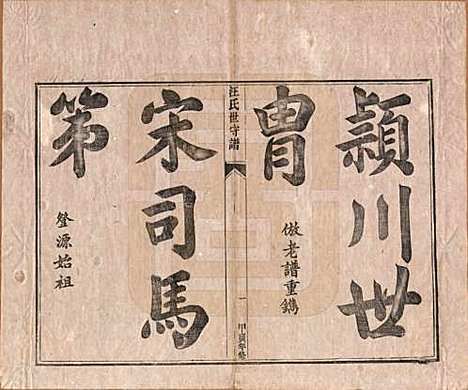 潁川世
胄
倣老譜重鐫
汪氏世守譜
一
宋司馬
第
婺源始祖